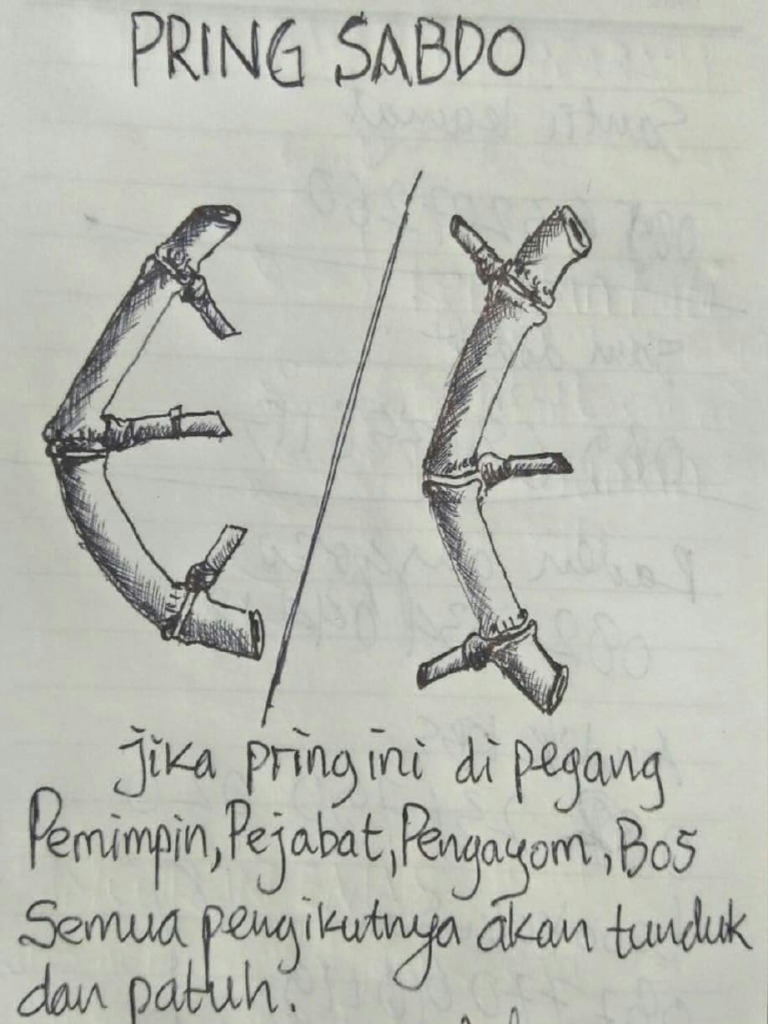 PRING SABDO
jika pring ini di pegang
Pemimpin, Pejabat, Pengayom, Bos
Semua pengikutnya akan tunduk
dan patuh.